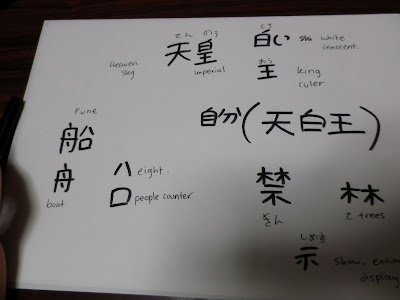 てん のう
天皇
Heaven
sky
imperial
しろ
白い white
innocent.
おう
王 king
ruler
Fune
船
舟
boat
ハ eight.
口 people counter
自分(天白王)
禁
きん
林
2 trees
しめす
示 show, exam
display